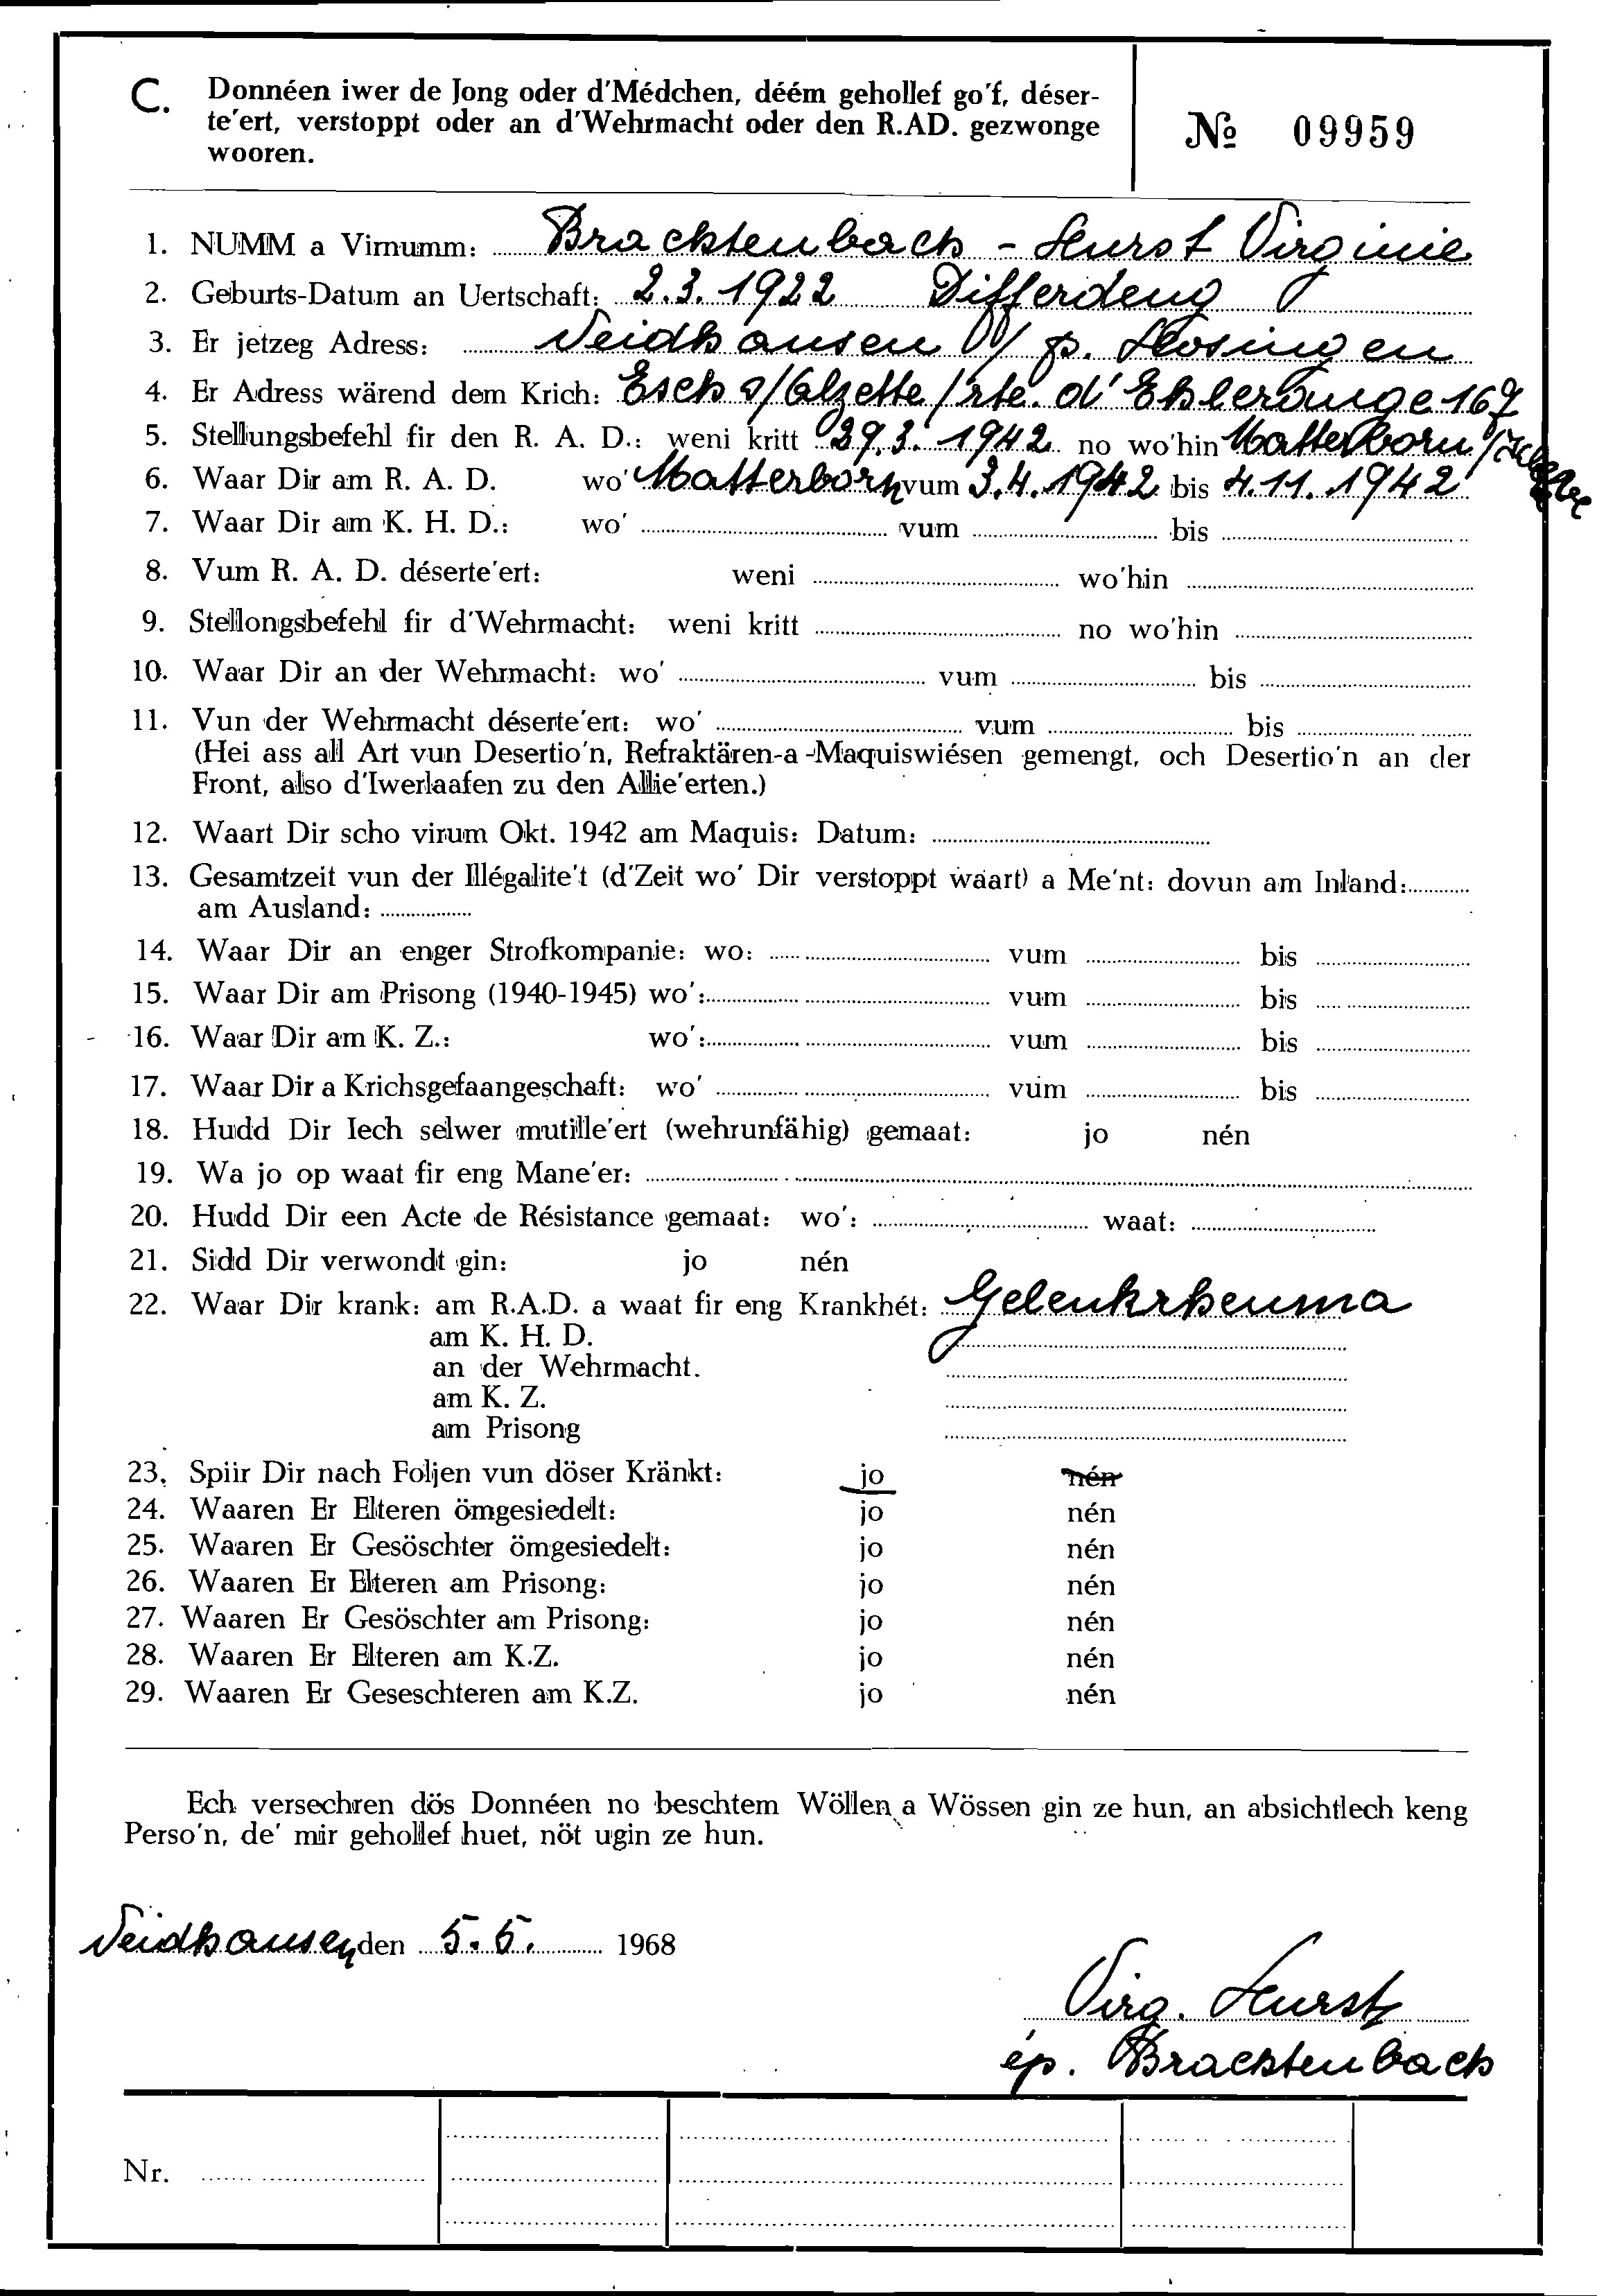 C. Donnéen iwer de Jong oder d'Médchen, déém gehollef go'f, déser-
te'ert, verstoppt oder an d'Wehrmacht oder den R.AD. gezwonge
wooren.
№ 09959
1. NUMM a Virnumm: Brachtenbach - Hurst Virginie
2. Geburts-Datum an Uertschaft: 2.3.1922 Differdeng
3. Er jetzeg Adress: Neidhausen / p. Hosingen
4. Er Adress wärend dem Krich: Esch s/Alzette / rte. d'Ehlerange 167
5. Stellungsbefehl fir den R. A. D.: weni kritt 29.3.1942 no wo'hin Matterborn
6. Waar Dir am R. A. D. wo' Matterborn vum 3.4.1942 bis 4.11.1942
7. Waar Dir am K. H. D.: wo' vum bis
8. Vum R. A. D. déserte'ert: weni wo'hin
9. Stellongsbefehl fir d'Wehrmacht: weni kritt no wo'hin
10. Waar Dir an der Wehrmacht: wo' vum bis
11. Vun der Wehrmacht déserte'ert: wo' vum bis
(Hei ass all Art vun Desertio'n, Refraktären-a-Maquiswiésen gemengt, och Desertio'n an der
Front, also d'Iwerlaafen zu den Allie'erten.)
12. Waart Dir scho virum Okt. 1942 am Maquis: Datum:
13. Gesamtzeit vun der Illégalite't (d'Zeit wo' Dir verstoppt waart) a Me'nt: dovun am Inland:
am Ausland:
14. Waar Dir an enger Strofkompanie: wo: vum bis
15. Waar Dir am Prisong (1940-1945) wo': vum bis
16. Waar Dir am K. Z.: wo': vum bis
17. Waar Dir a Krichsgefaangeschaft: wo' vum bis
18. Hudd Dir Iech selwer mutille'ert (wehrunfähig) gemaat: jo nén
19. Wa jo op waat fir eng Mane'er:
20. Hudd Dir een Acte de Résistance gemaat: wo': waat:
21. Sidd Dir verwondt gin: jo nén
22. Waar Dir krank: am R.A.D. a waat fir eng Krankhét: Gelenkrheuma
am K. H. D.
an der Wehrmacht.
am K. Z.
am Prisong
23. Spiir Dir nach Foljen vun döser Kränkt: jo nén
24. Waaren Er Elteren ömgesiedelt: jo nén
25. Waaren Er Gesöschter ömgesiedelt: jo nén
26. Waaren Er Elteren am Prisong: jo nén
27. Waaren Er Gesöschter am Prisong: jo nén
28. Waaren Er Elteren am K.Z. jo nén
29. Waaren Er Geseschteren am K.Z. jo nén
Ech versechren dös Donnéen no beschtem Wöllen a Wössen gin ze hun, an absichtlech keng
Perso'n, de' mir gehollef huet, nöt ugin ze hun.
Neidhausen, den 5.5. 1968
Virg. Hurst
ép. Brachtenbach
Nr.